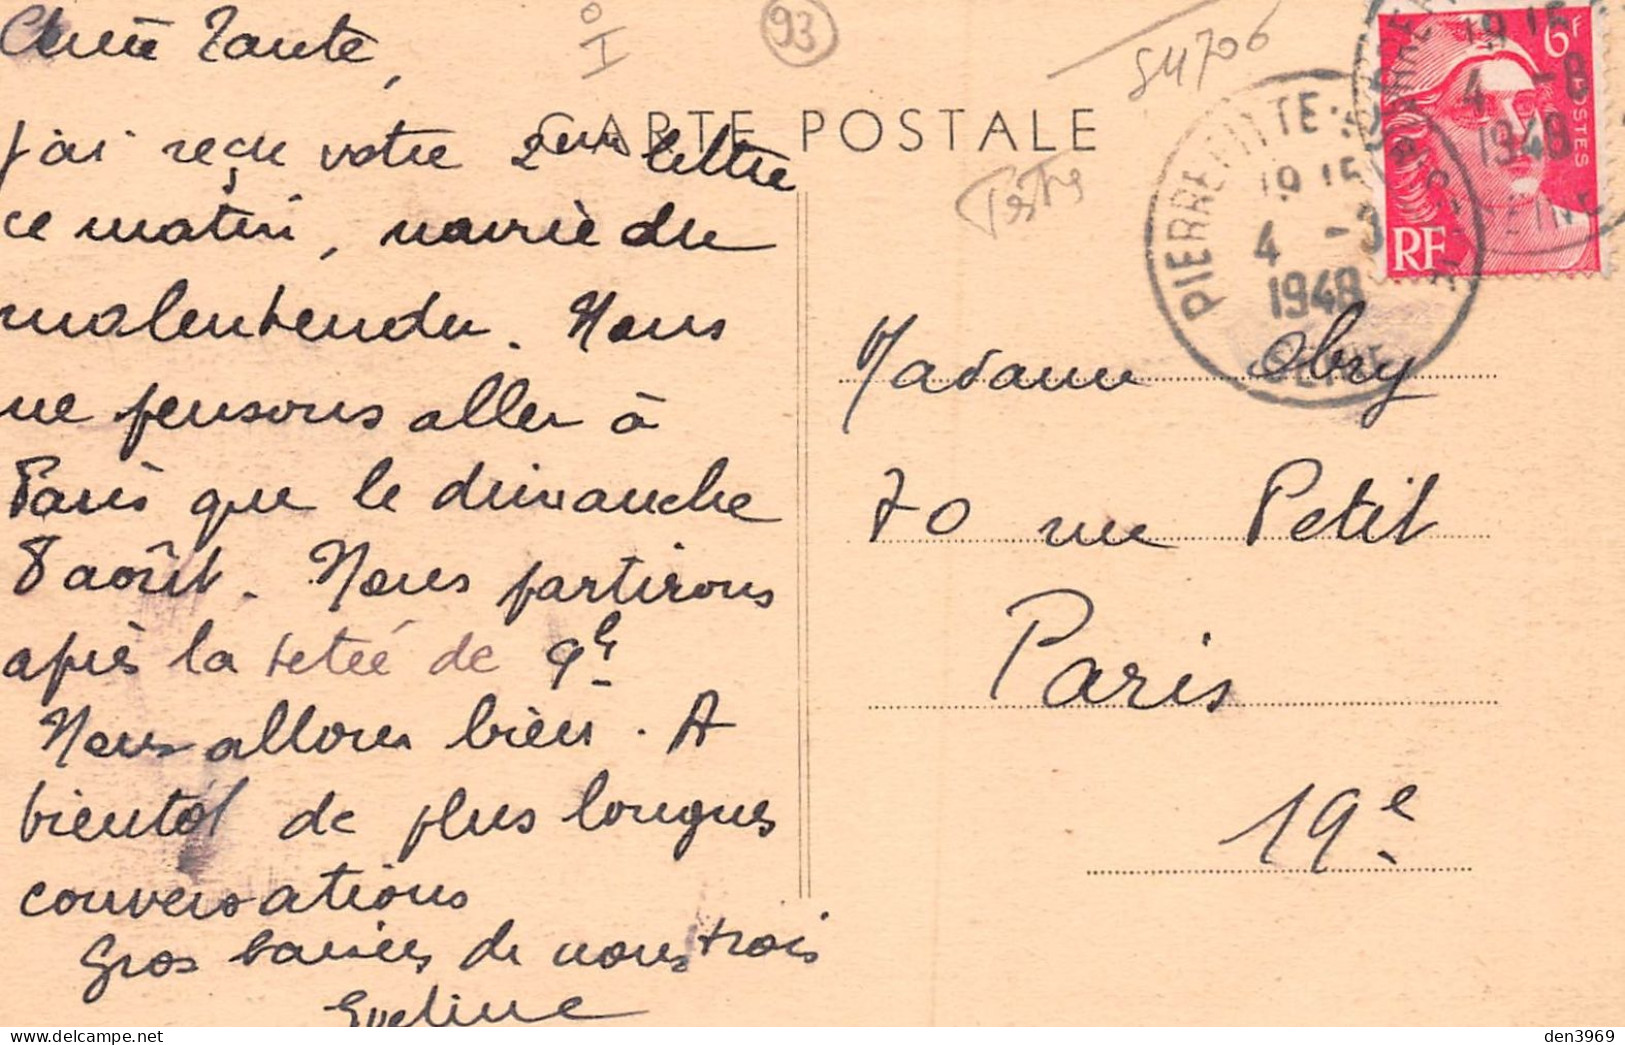 Chère Tante,
j'ai reçu votre 2ème lettre
ce matin, navrée du
malentendu. Nous
ne pensons aller à
Paris que le dimanche
8 août. Nous partirons
après la tetée de 9h
Nous allons bien. A
bientôt de plus longues
conversations
Gros baisers de nous trois
Eveline
93
54706
CARTE POSTALE
PIERREFITTE
19 15
4 -8
1948
SEINE
6F
POSTES
RF
19 15
4 -8
1948
SEINE
Madame Obry
70 rue Petit
Paris
19e
den3969